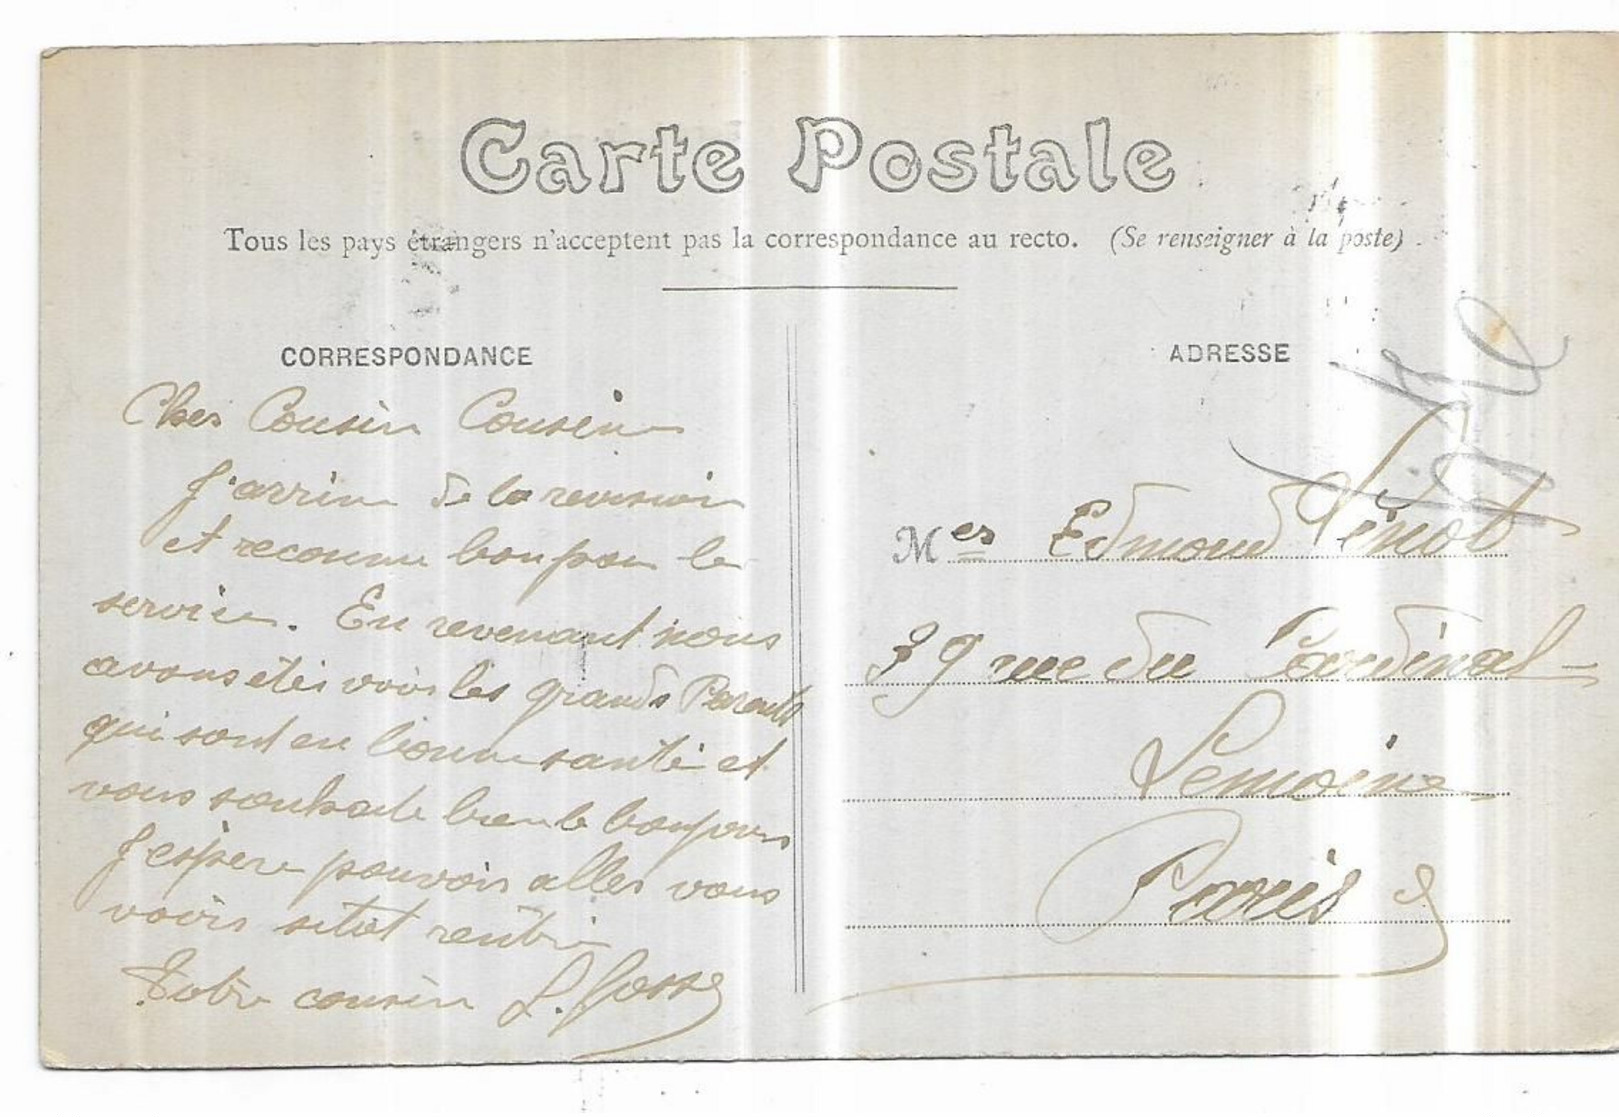 Carte Postale
Tous les pays étrangers n'acceptent pas la correspondance au recto. (Se renseigner à la poste)
CORRESPONDANCE
Cher Cousin Cousine
J'arrive de la revision
et reconnu bon pour le
service. En revenant nous
avons étés voir les grands Parents
qui sont en bonne santé et
vous souhaite bien le bonjour
J'espere pouvoir aller vous
voir sitôt rentré
Votre cousin L. Gosse
ADRESSE
Mes Edmond Pinot
39 rue du Cardinal
Lemoine
Paris 5